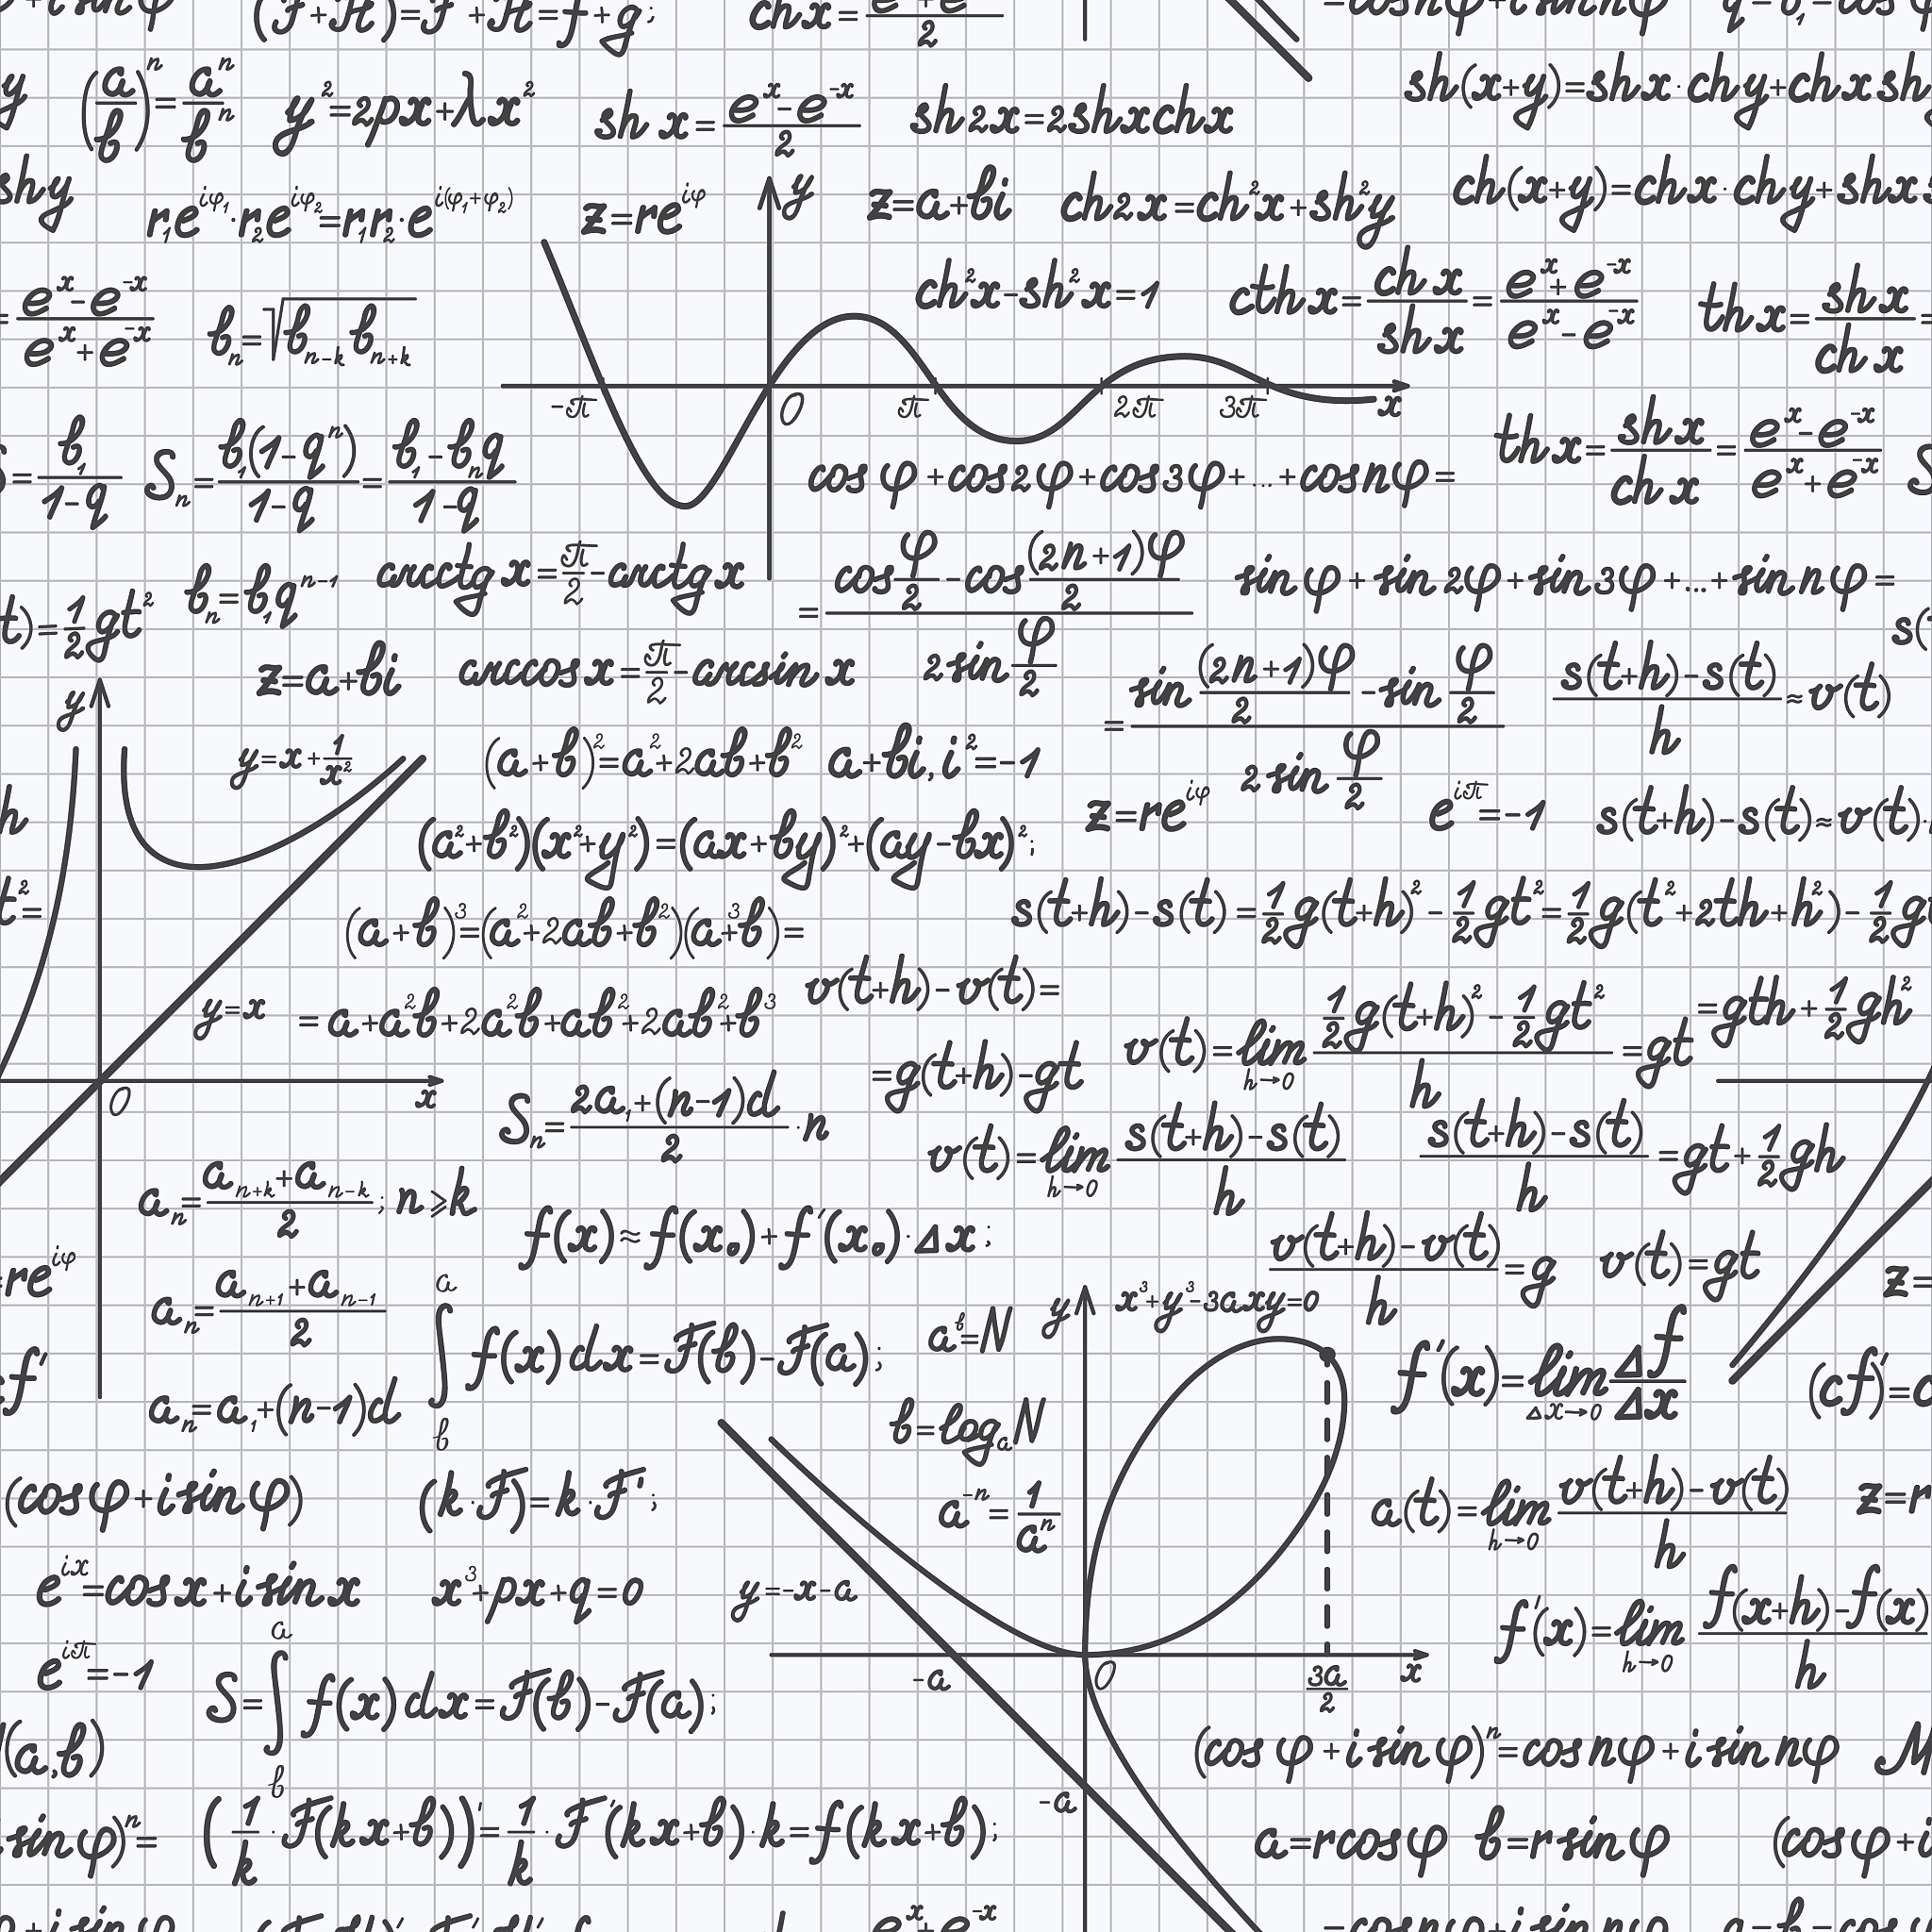 sh x = (e^x - e^-x)/2
sh 2x = 2 sh x ch x
(a/b)^n = a^n/b^n
y² = 2px + λx²
sh(x+y) = sh x · ch y + ch x sh
sh y
r₁e^iφ₁ · r₂e^iφ₂ = r₁r₂ · e^i(φ₁+φ₂)
z = re^iφ
y
z = a + bi
ch 2x = ch²x + sh²y
ch(x+y) = ch x · ch y + sh x s
= (e^x - e^-x)/(e^x + e^-x)
b_n = √(b_n-k b_n+k)
ch²x - sh²x = 1
cth x = ch x/sh x = (e^x + e^-x)/(e^x - e^-x)
th x = sh x/ch x =
-π O π 2π 3π x
= b₁/(1-q)
S_n = b₁(1-q^n)/(1-q) = (b₁ - b_n q)/(1-q)
cos φ + cos 2φ + cos 3φ + ... + cos nφ =
th x = sh x/ch x = (e^x - e^-x)/(e^x + e^-x)
t) = 1/2 gt²
b_n = b₁q^n-1
arcctg x = π/2 - arctg x
= (cos φ/2 - cos (2n+1)φ/2)/(2 sin φ/2)
sin φ + sin 2φ + sin 3φ + ... + sin nφ =
s(
z = a + bi
arccos x = π/2 - arcsin x
= (sin (2n+1)φ/2 - sin φ/2)/(2 sin φ/2)
(s(t+h) - s(t))/h ≈ v(t)
y
y = x + 1/x²
(a+b)² = a² + 2ab + b²
a + bi, i² = -1
h
z = re^iφ
e^iπ = -1
s(t+h) - s(t) ≈ v(t) ·
(a²+b²)(x²+y²) = (ax+by)² + (ay-bx)²;
t² =
(a+b)³ = (a²+2ab+b²)(a³+b) =
s(t+h) - s(t) = 1/2 g(t+h)² - 1/2 gt² = 1/2 g(t²+2th+h²) - 1/2 gt
y = x
= a + a²b + 2a²b + ab² + 2ab² + b³
v(t+h) - v(t) =
v(t) = lim h→0 (1/2 g(t+h)² - 1/2 gt²)/h = gt
= gth + 1/2 gh²
O x
= g(t+h) - gt
S_n = (2a₁ + (n-1)d)/2 · n
v(t) = lim h→0 (s(t+h) - s(t))/h
(s(t+h) - s(t))/h = gt + 1/2 gh
a_n = (a_n+k + a_n-k)/2; n ⩾ k
f(x) ≈ f(x₀) + f'(x₀) · Δx;
(v(t+h) - v(t))/h = g
v(t) = gt
z =
re^iφ
a_n = (a_n+1 + a_n-1)/2
∫ a b f(x) dx = F(b) - F(a);
a^b = N
y
x³ + y³ - 3axy = 0
f'
a_n = a₁ + (n-1)d
b = log_a N
f'(x) = lim Δx→0 Δf/Δx
(cf)' = c
(cos φ + i sin φ)
(k · F) = k · F';
a^-n = 1/a^n
a(t) = lim h→0 (v(t+h) - v(t))/h
z = r
e^ix = cos x + i sin x
x³ + px + q = 0
y = -x - a
f'(x) = lim h→0 (f(x+h) - f(x))/h
e^iπ = -1
S = ∫ a b f(x) dx = F(b) - F(a);
-a O 3a/2 x
(a,b)
(cos φ + i sin φ)^n = cos nφ + i sin nφ
-a
sin φ)^n =
(1/k · F(kx+b))' = 1/k · F'(kx+b) · k = f(kx+b);
a = r cos φ
b = r sin φ
(cos φ + i